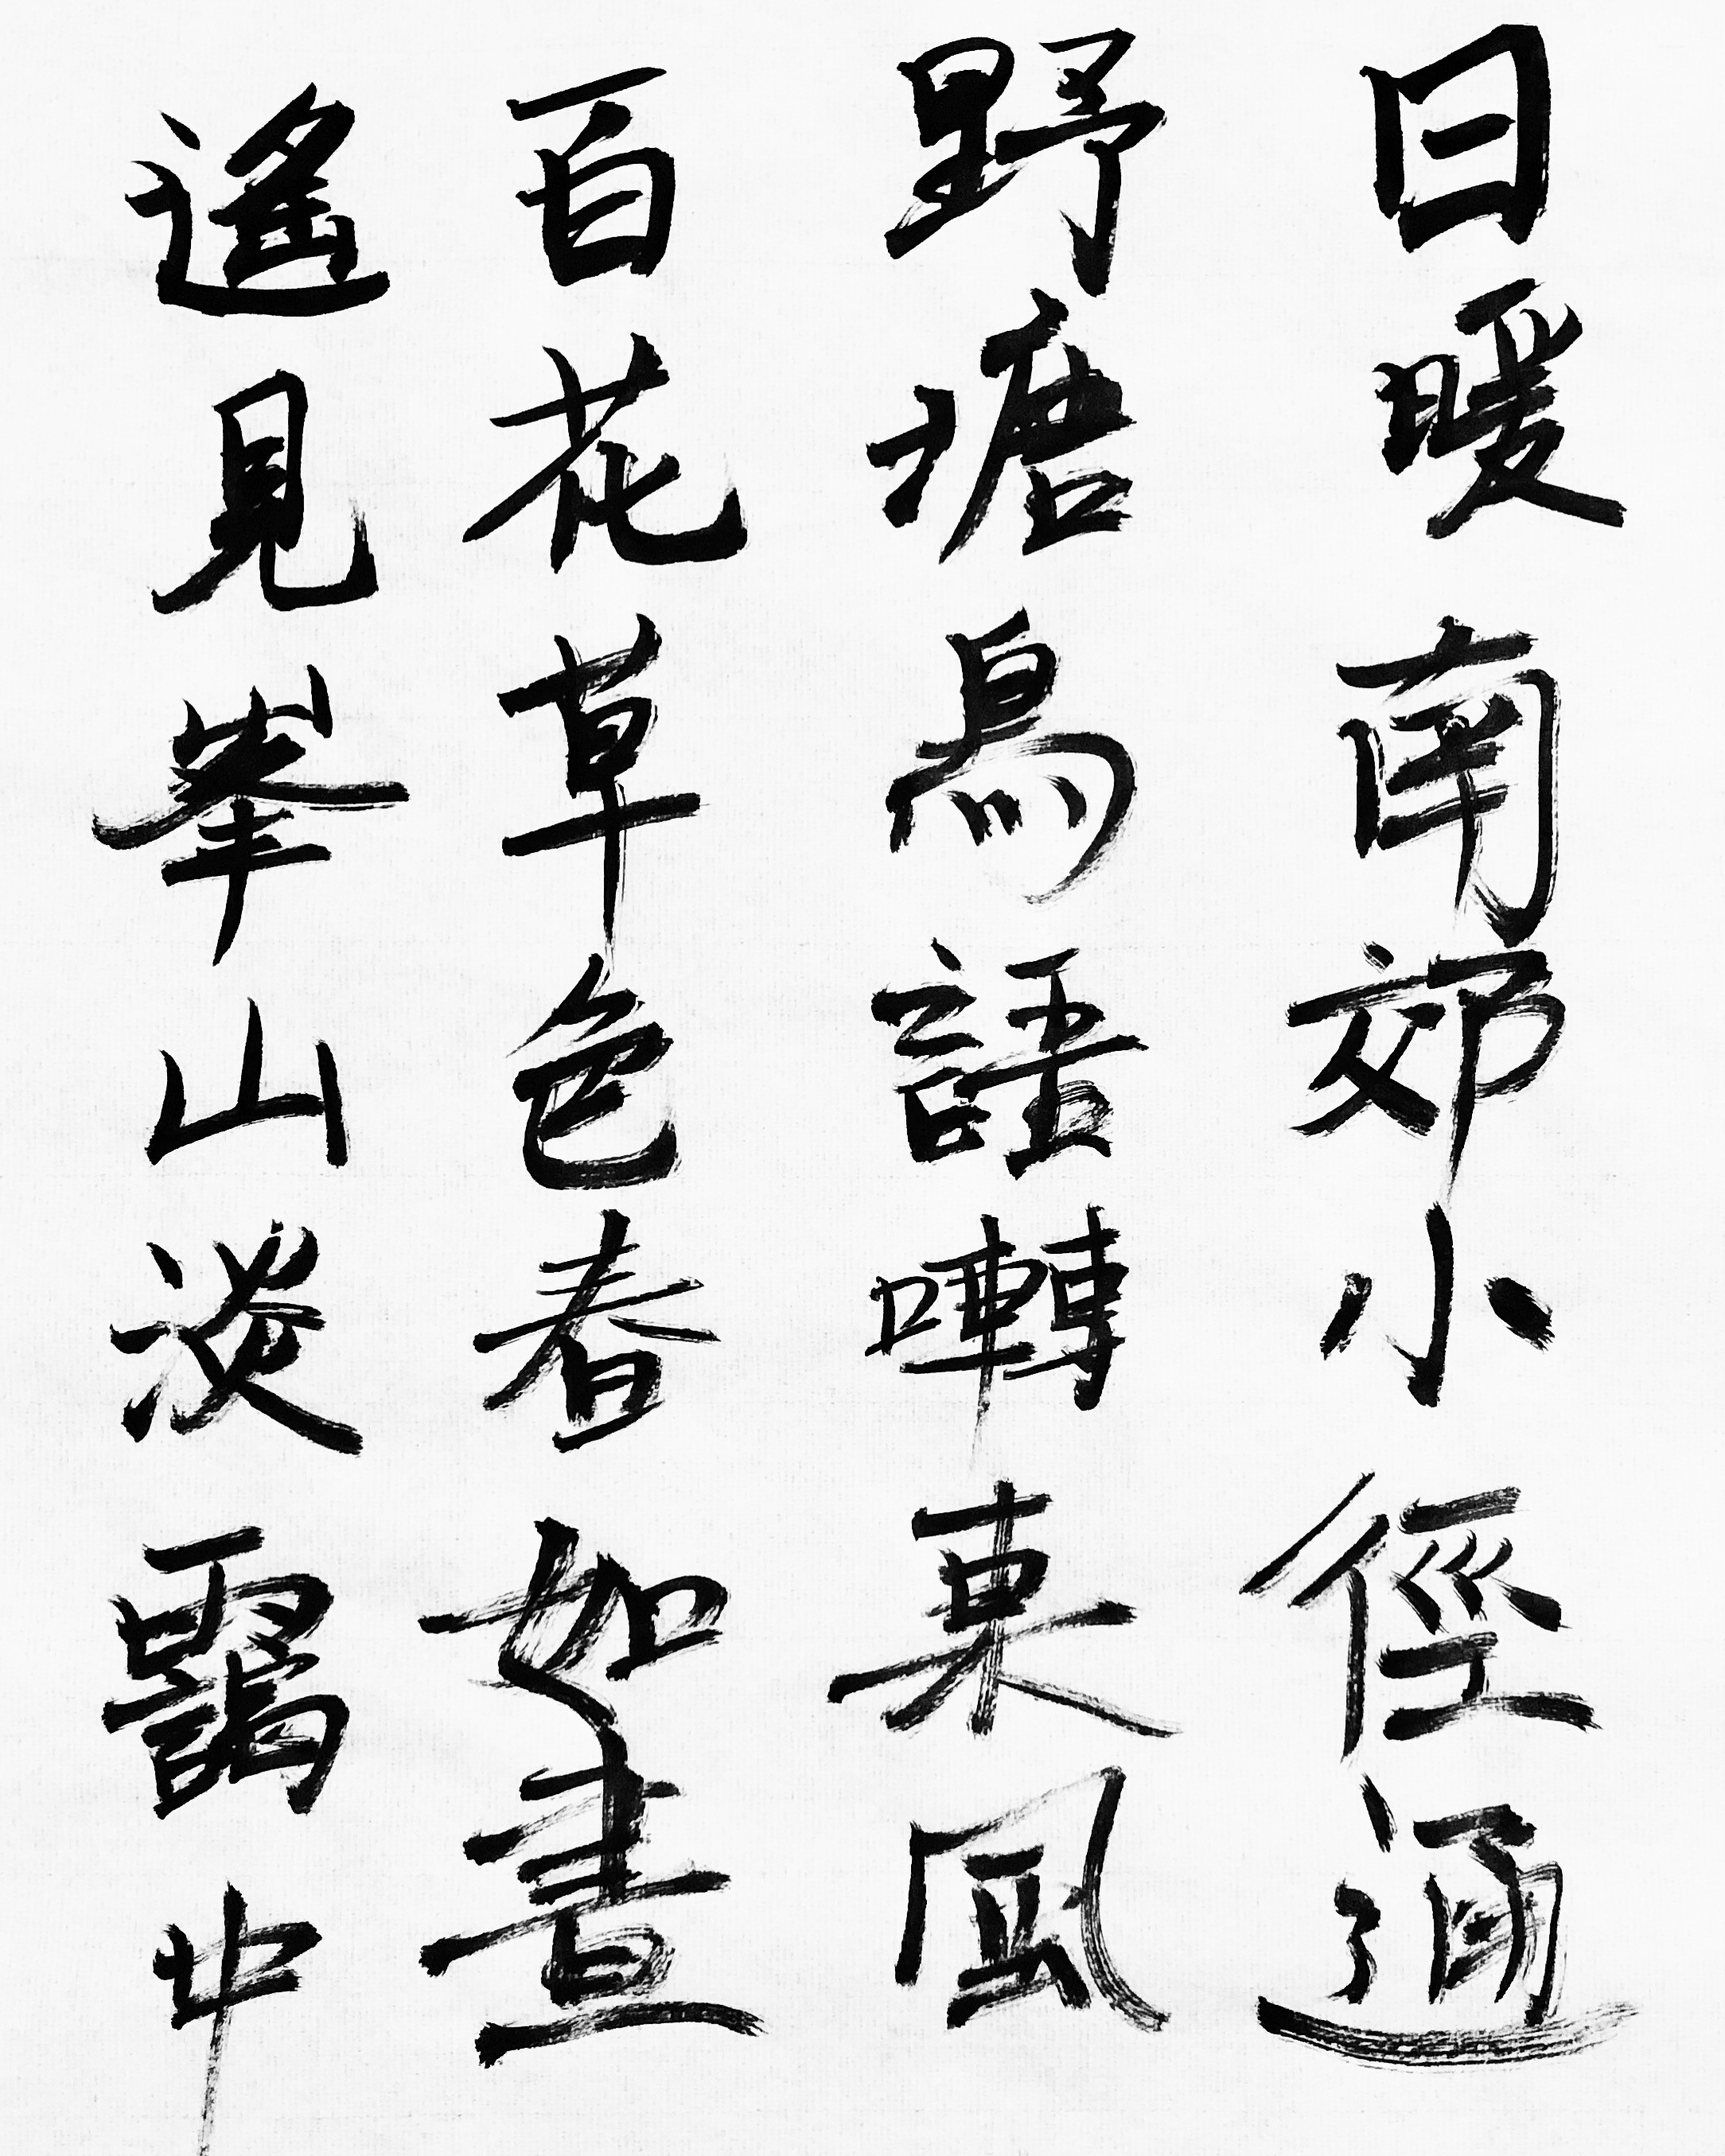 日暖南郊小徑通
野塘鳥語囀東風
百花草色春如畫
遙見峯山淡靄中